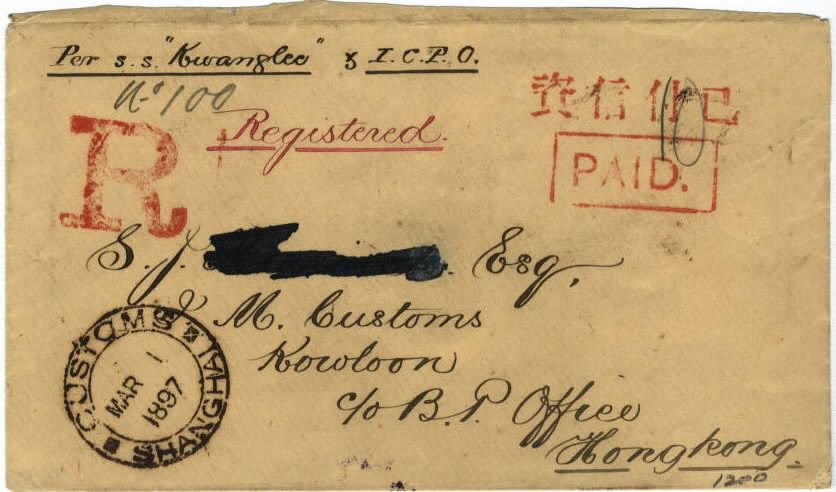 Per s.s. "Kwanglee" & I.C.P.O.
No 100
Registered.
R
資信付已
10
PAID.
S. J. Esq.
I. M. Customs
Kowloon
c/o B. P. Office
Hongkong.
1200
CUSTOMS
SHANGHAI
MAR 1
1897